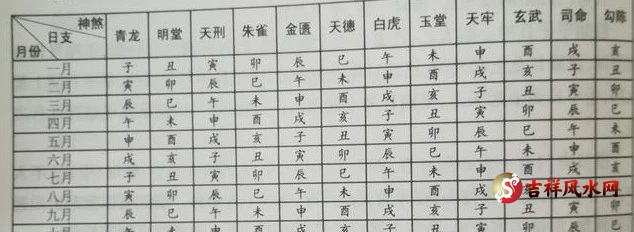 神煞
日支
月份
青龙 明堂 天刑 朱雀 金匮 天德 白虎 玉堂 天牢 玄武 司命 勾陈
一月 子 丑 寅 卯 辰 巳 午 未 申 酉 戌 亥
二月 寅 卯 辰 巳 午 未 申 酉 戌 亥 子 丑
三月 辰 巳 午 未 申 酉 戌 亥 子 丑 寅 卯
四月 午 未 申 酉 戌 亥 子 丑 寅 卯 辰 巳
五月 申 酉 戌 亥 子 丑 寅 卯 辰 巳 午 未
六月 戌 亥 子 丑 寅 卯 辰 巳 午 未 申 酉
七月 子 丑 寅 卯 辰 巳 午 未 申 酉 戌 亥
八月 寅 卯 辰 巳 午 未 申 酉 戌
吉祥风水网
九月 辰 巳 午 未 申 酉 戌 亥 子 丑 寅 卯
午 未 申 酉 戌 亥 子 丑 寅 卯 辰 巳